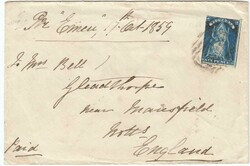 Per "Emeu," 17th Oct. 1859
To Mrs Bell
Gleadthorpe
near Mansfield
Notts
England
Paid